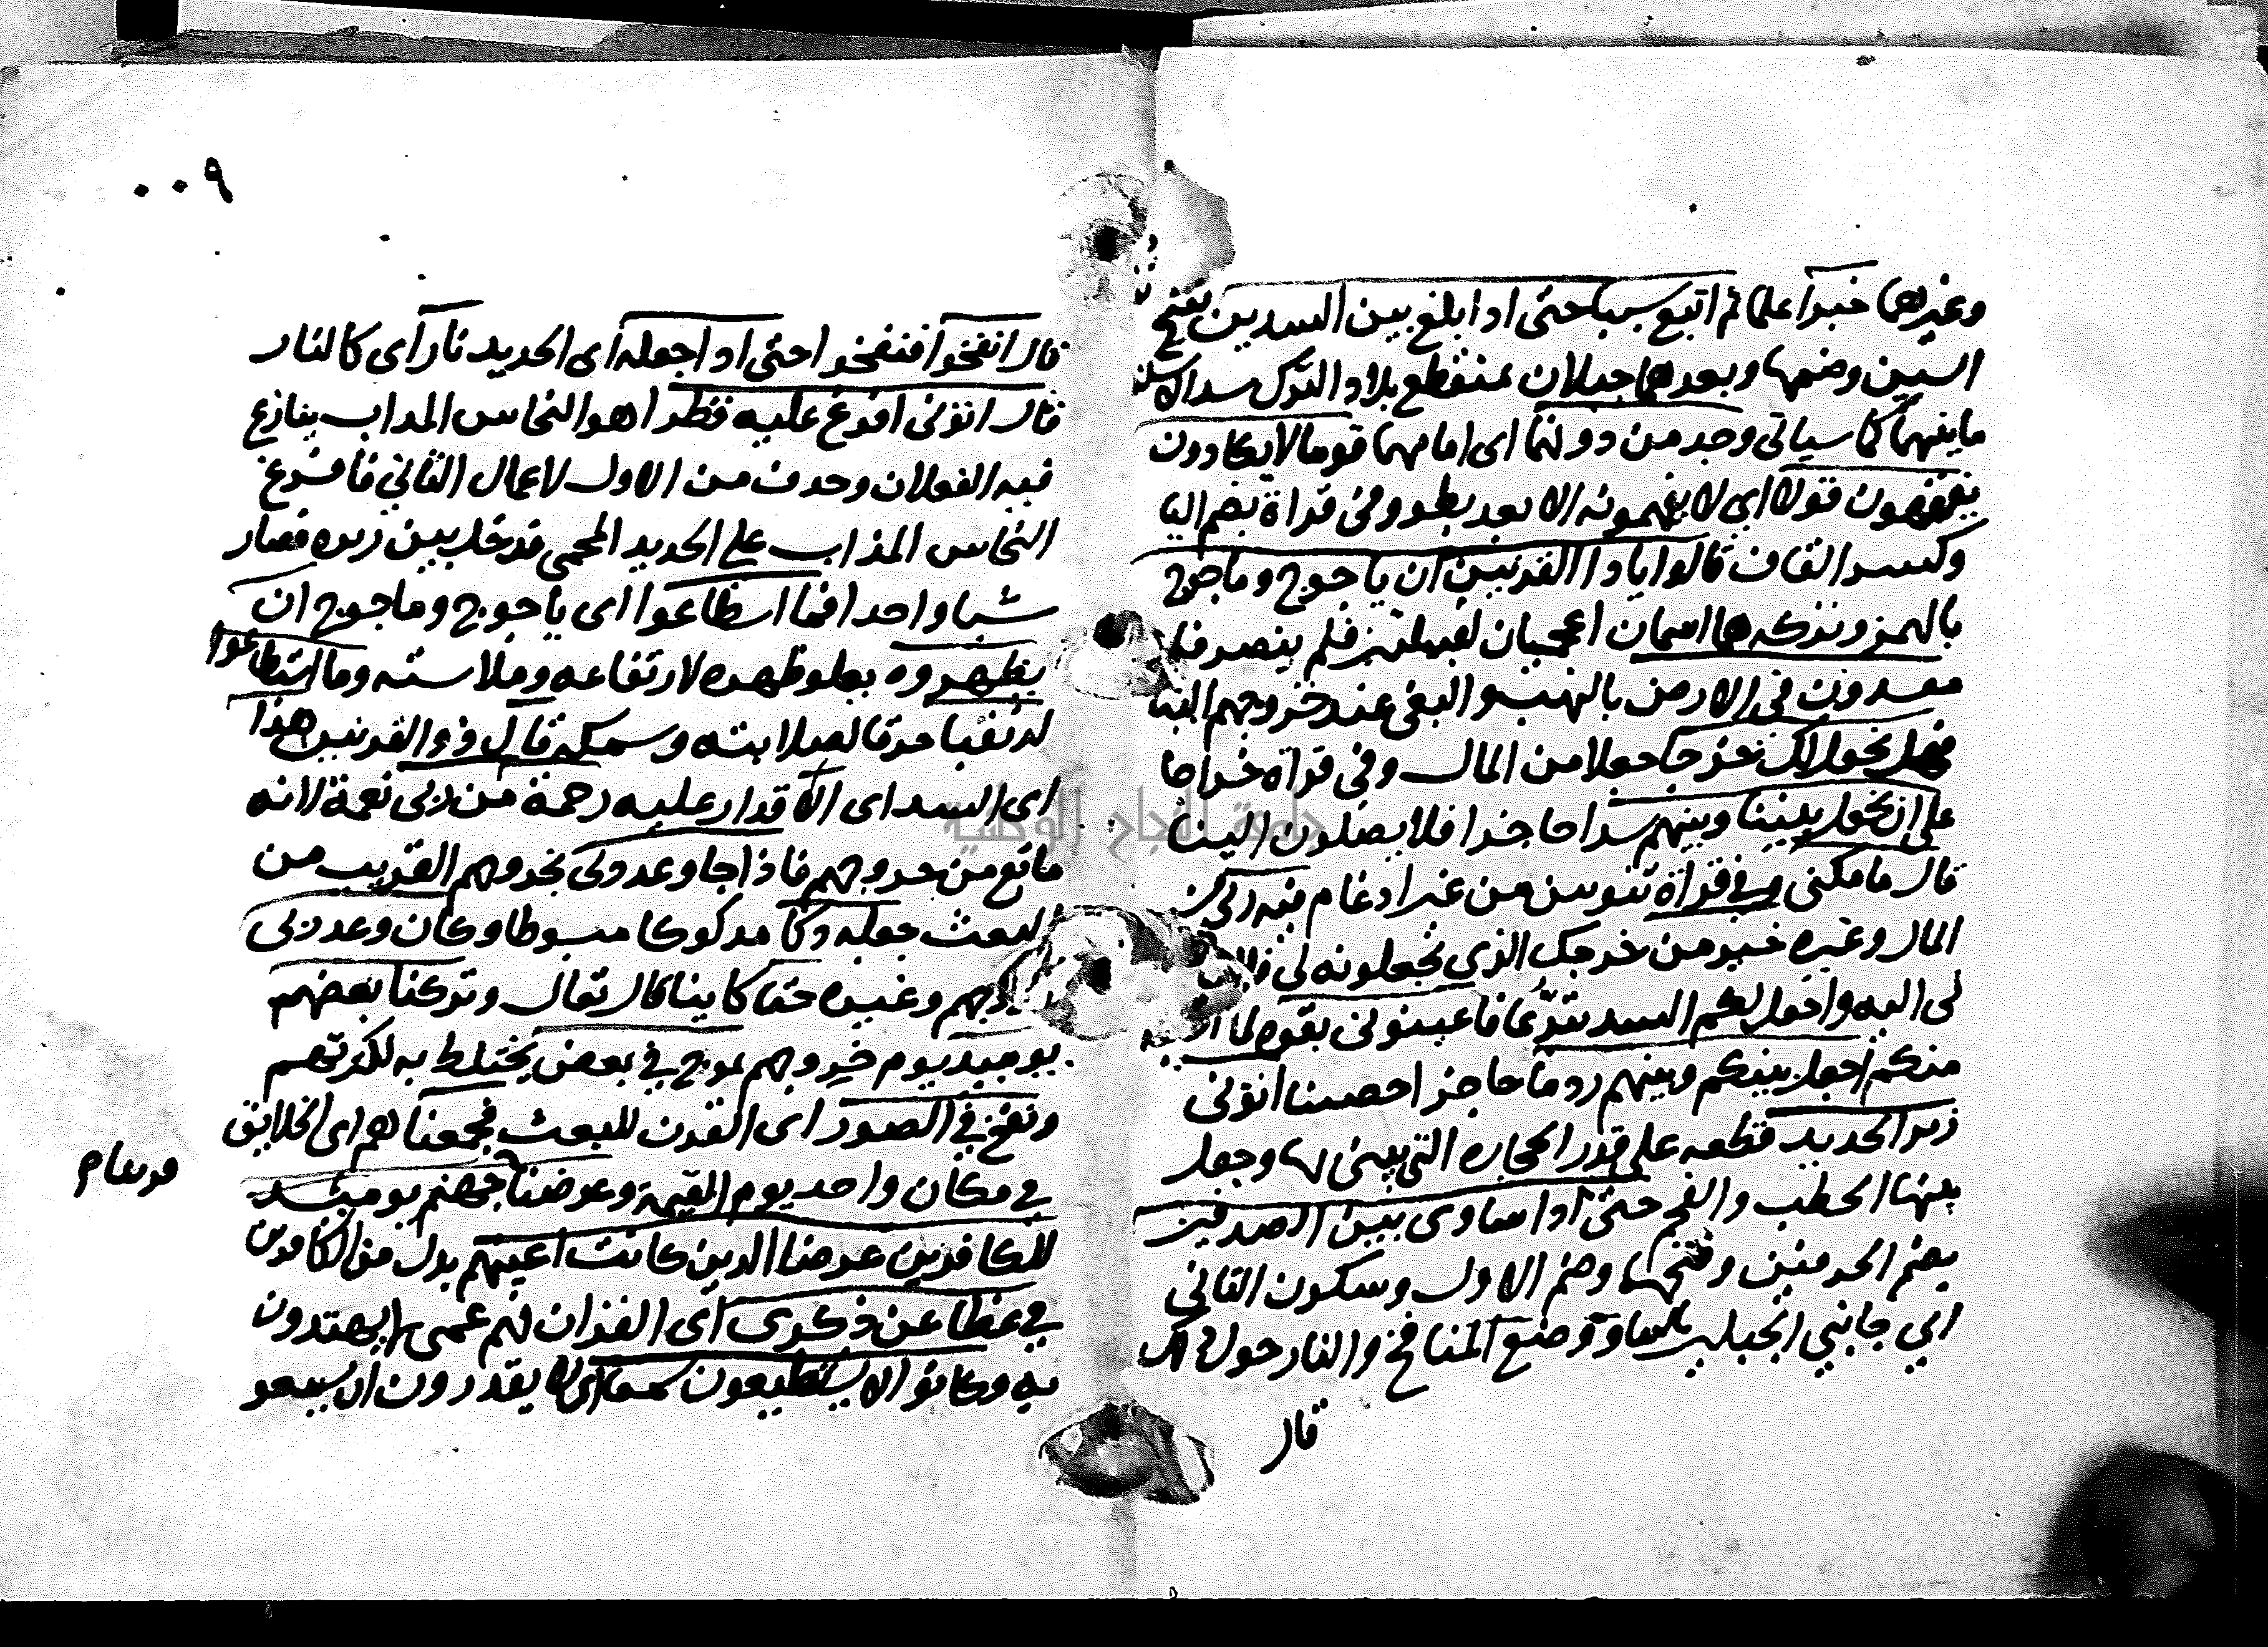 وغيرهما خبرا علما ثم اتبع سببا حتى اذا بلغ بين السدين بفتح
السين وضمها وبعدهما جبلان بمنقطع بلاد الترك سد الاسكندر
ما بينهما كما سياتي وجد من دونهما اي امامهما قوما لا يكادون
يفقهون قولا اي لا يفهمونه الا بعد بطو وفي قراة بضم اليا
وكسر القاف قالوا ياذا القرنين ان ياجوج وماجوج
بالهمز وتركه هما اسمان اعجميان لقبيلتين فلم ينصرفا
مفسدون في الارض بالنهب والبغي عند خروجهم الينا
فهل نجعل لك خرجا جعلا من المال وفي قراة خراجا
على ان تجعل بيننا وبينهم سدا حاجزا فلا يصلون الينا
قال ما مكنى وفي قراة بنونين من غير ادغام فيه ربي من
المال وغيره خير من خرجكم الذي تجعلونه لي فلا حاجة
لي اليه واجعل لكم السد تبرعا فاعينوني بقوة لما
منكم اجعل بينكم وبينهم ردما حاجزا حصينا اتوني
زبر الحديد قطعه على قدر الحجاره التي يبنى بها وجعل
بينها الحطب والفحم حتى اذا ساوى بين الصدفين
بضم الحرفين وفتحهما وضم الاول وسكون الثاني
اي جانبي الجبلين بالبنا ووضع المنافخ والنار حول ذلك
قال
٠٠٩
قال انفخوا فنفخوا حتى اذا جعله اي الحديد نارا اي كالنار
قال اتوني افرغ عليه قطرا هو النحاس المداب يتنازع
فيه الفعلان وحدف من الاول لاعمال الثاني فافرغ
النحاس المذاب على الحديد المحمي فدخل بين زبره فصار
شيا واحدا فما اسطاعوا اي ياجوج وماجوج ان
يظهروه يعلو ظهره لارتفاعه وملاسته وما استطاعوا
له نقبا خرقا لصلابته وسمكه قال ذو القرنين هذا
اي السد اي الاقدار عليه رحمة من ربي نعمة لانه
مانع من خروجهم فاذا جا وعد ربي بخروجهم القريب من
البعث جعله دكا مدكوكا مبسوطا وكان وعد ربي
بخروجهم وغيره حقا كاينا قال تعال وتركنا بعضهم
يوميد يوم خروجهم يموج في بعض يختلط به لكثرتهم
ونفخ في الصور اي القرن للبعث فجمعنا هم اي الخلايق
في مكان واحد يوم القيمة وعرضنا جهنم يوميد
للكافرين عرضا الدين كانت اعينهم بدل من الكافرين
في غطا عن ذكري اي القران فهم عمي لا يهتدون
به وكانوا لا يستطيعون سمعا اي لا يقدرون ان يسمعو